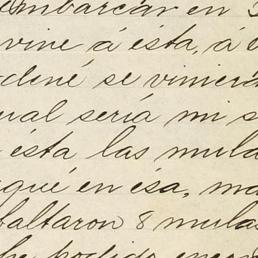 embarcar en
vine á ésta, á
dené se viniera
ual seria mi s
ésta las mula
qué en ésa, ma
faltaron 8 mulas
he podido encon